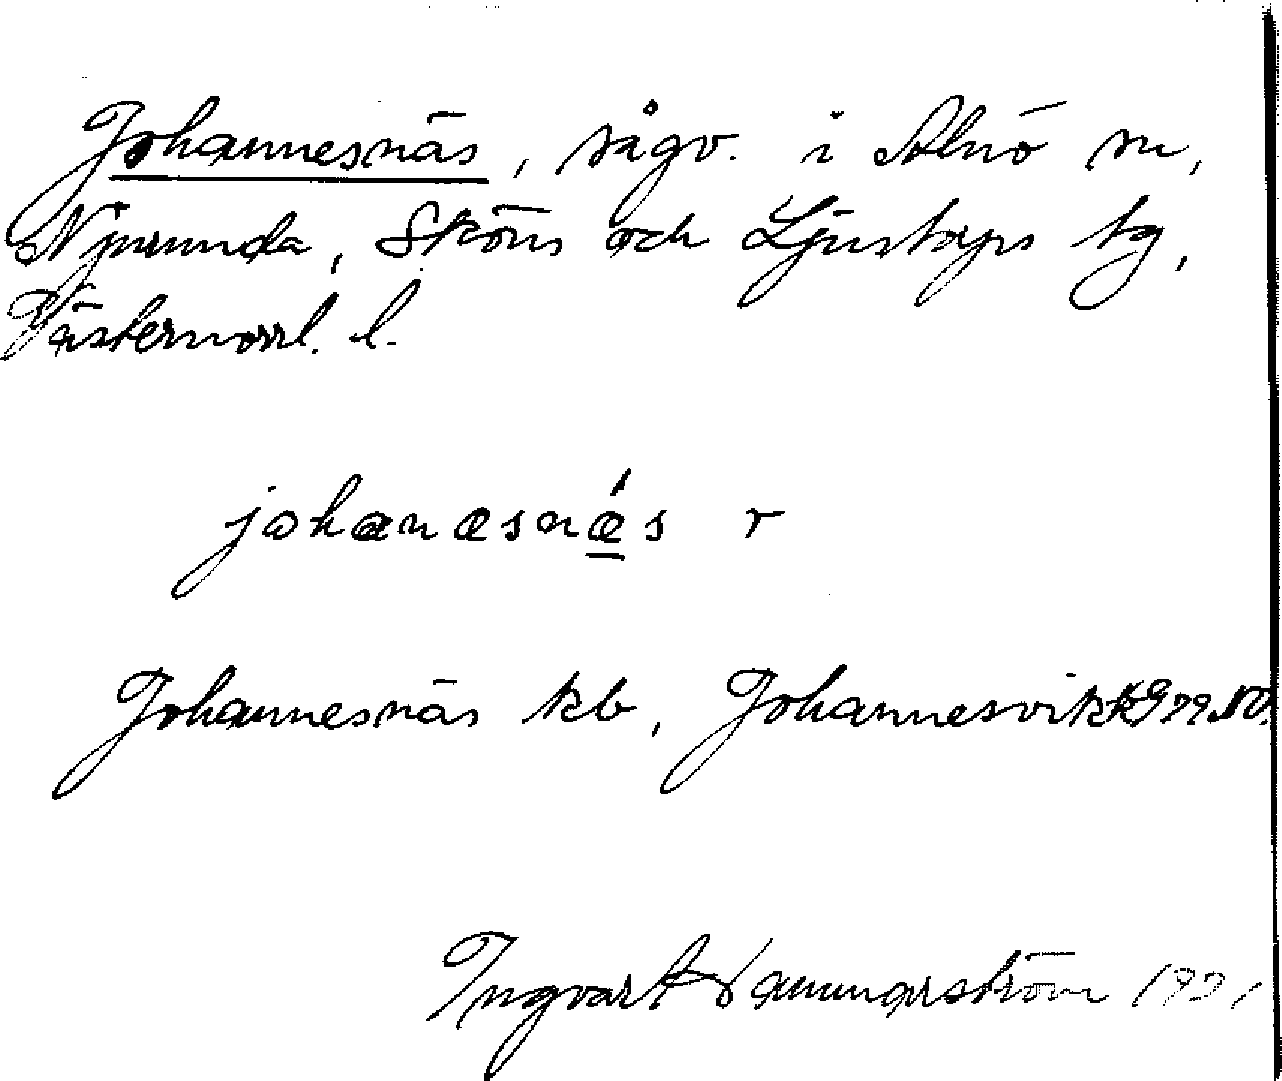 Johannesnäs, sågv. i Alnö sn,
Njurunda, Sköns och Ljustorps tg,
Västernorrl. l.
johanæsnǽs r
Johannesnäs kb, Johannesvik
Ingvar